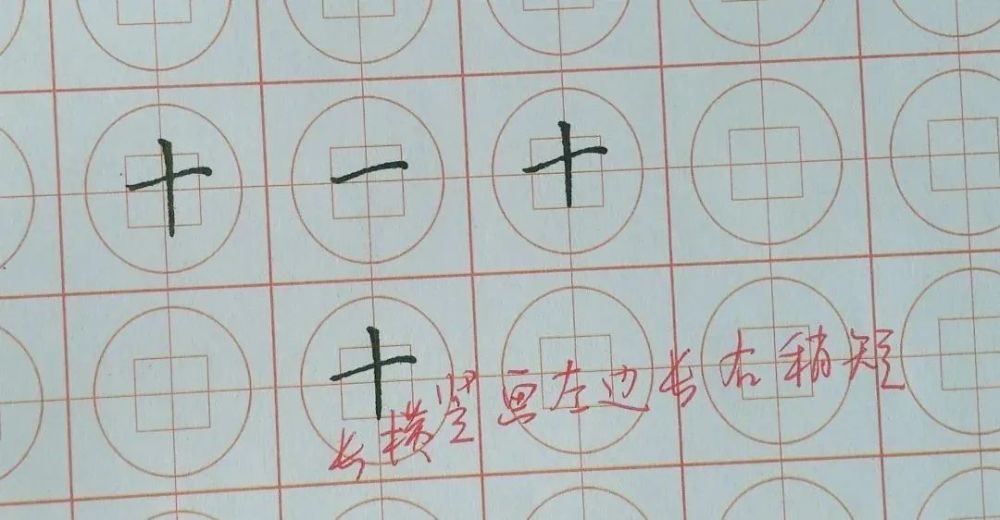 十一十
十
长横竖画左边长右稍短